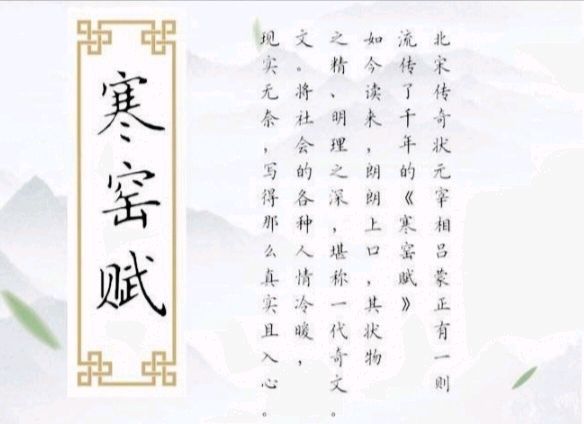 寒窑赋
北宋传奇状元宰相吕蒙正有一则
流传了千年的《寒窑赋》
如今读来，朗朗上口，其状物
之精、明理之深，堪称一代奇文。
文。将社会的各种人情冷暖，
现实无奈，写得那么真实且入心。